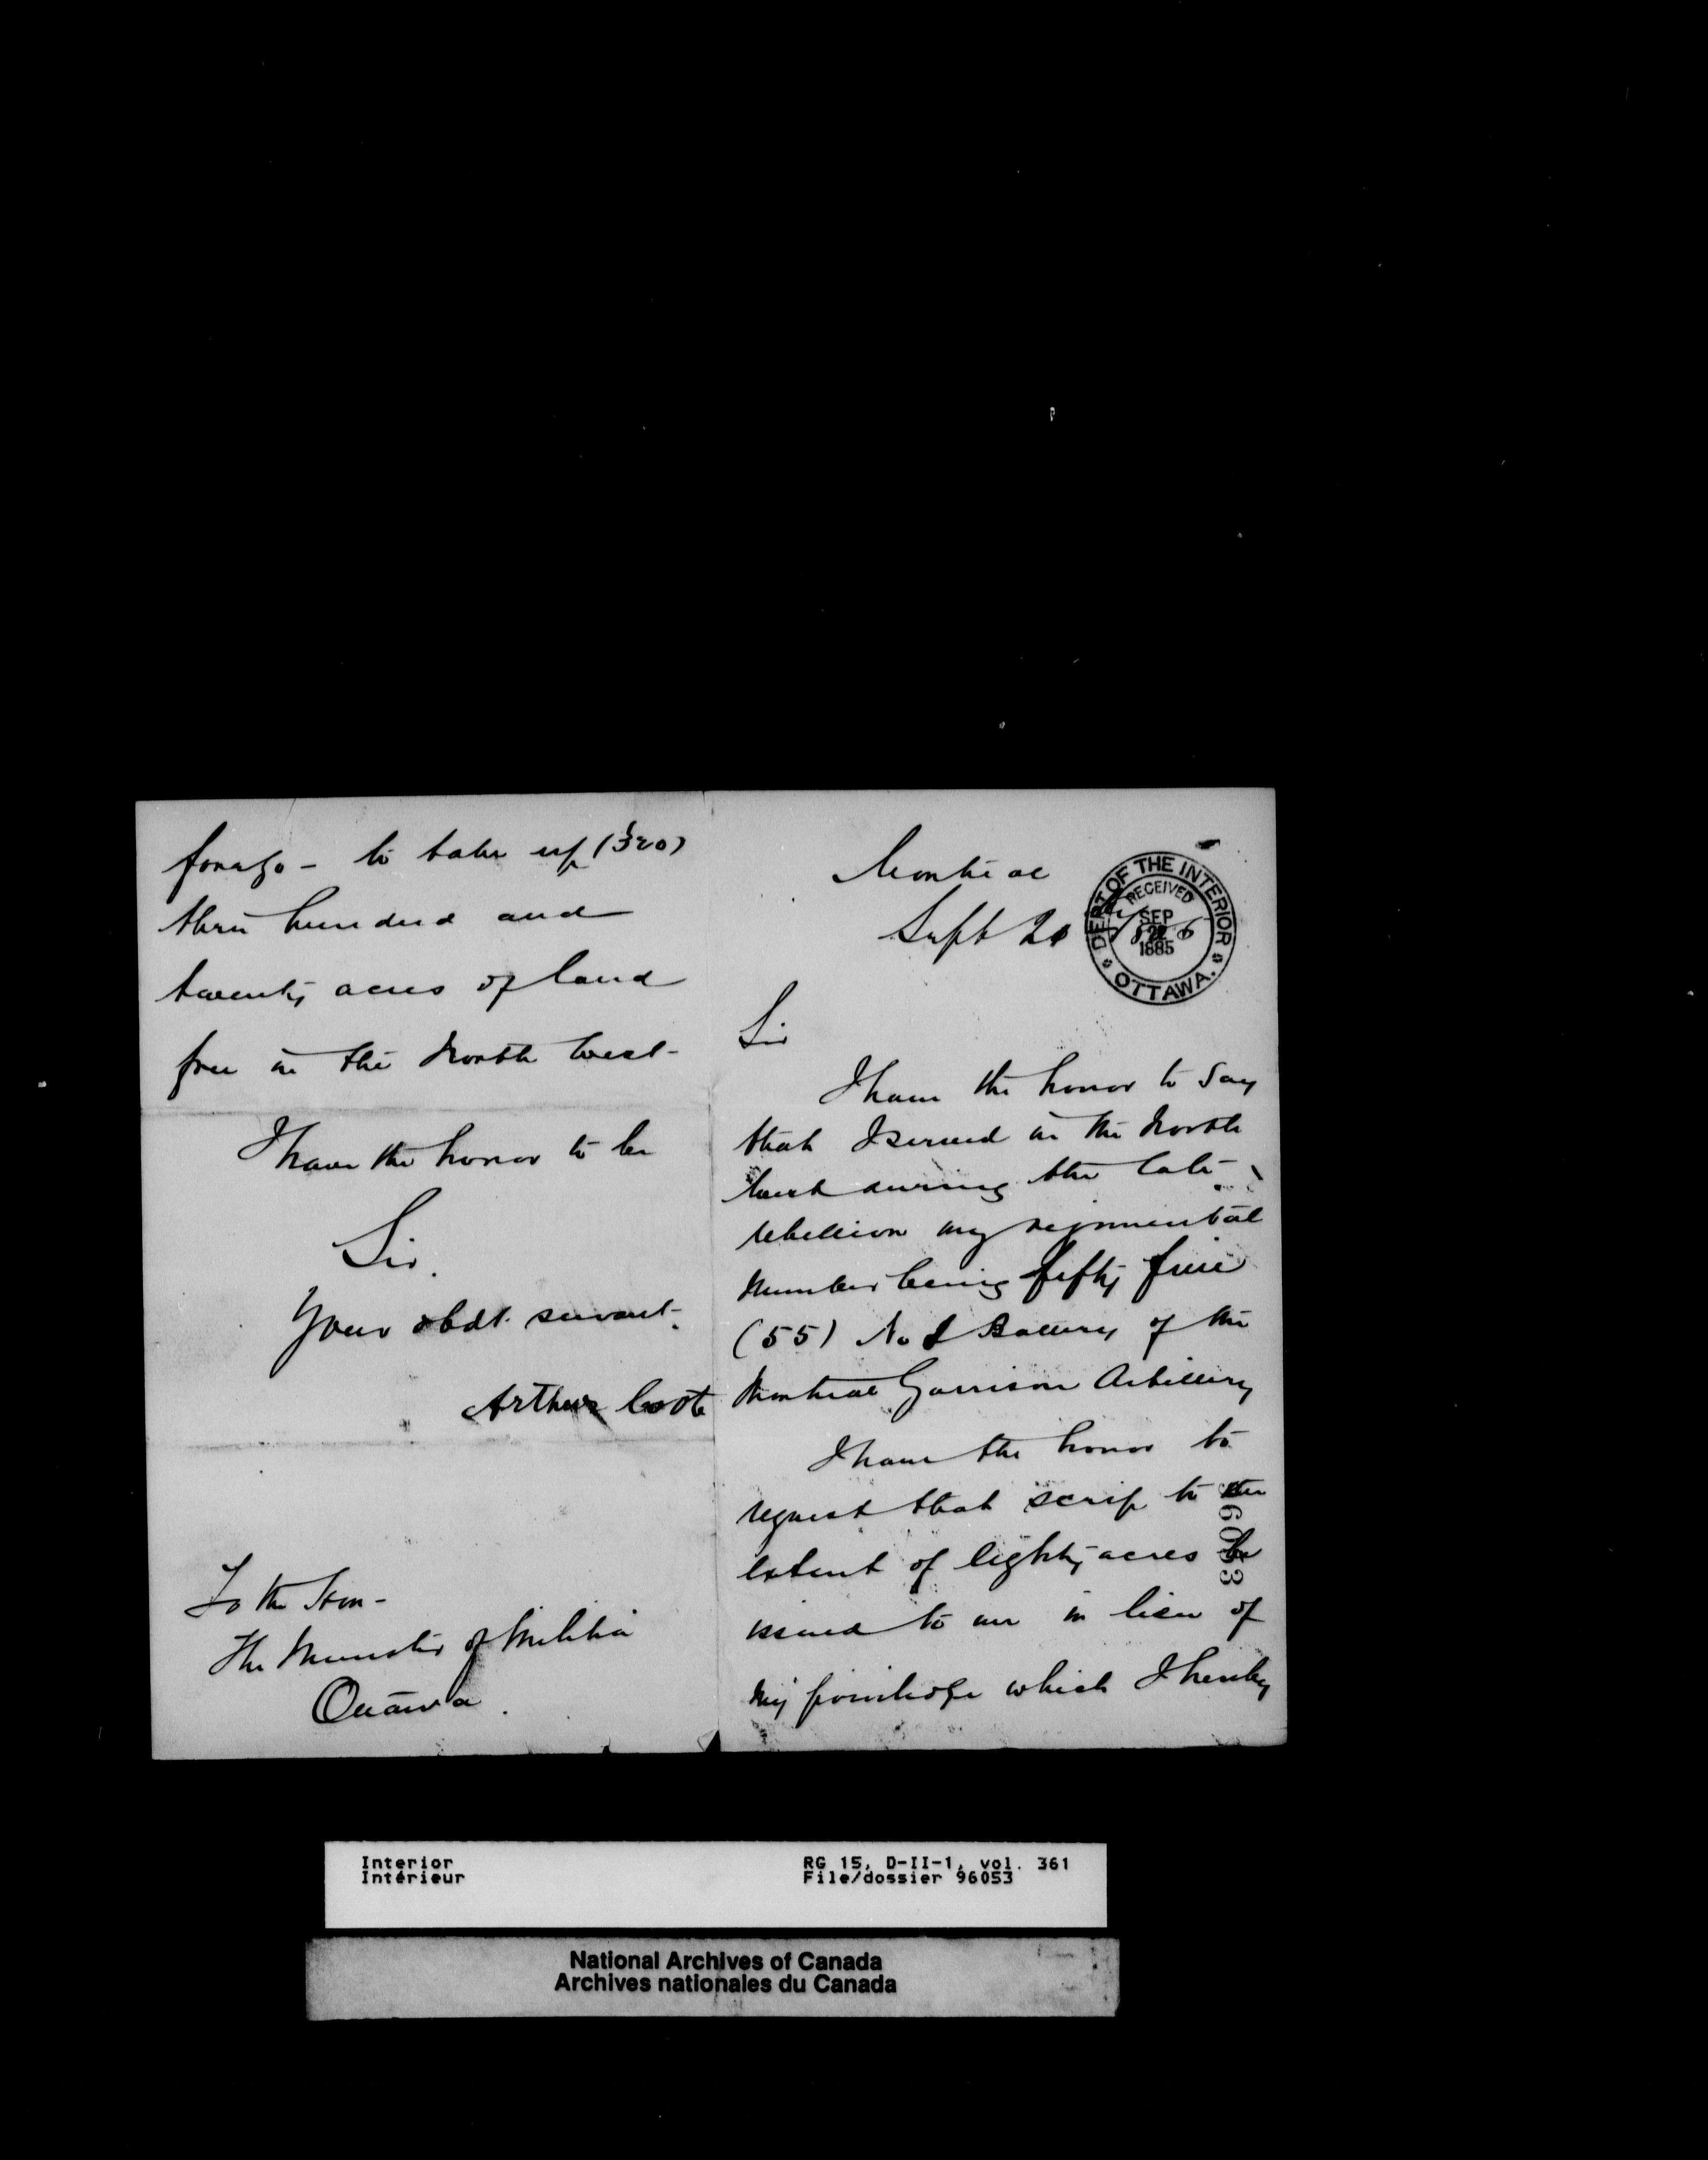 Montreal
Sept 20th 1885
DEPT OF THE INTERIOR
RECEIVED
SEP
1885
OTTAWA.
Sir
I have the honor to say
that I served in the North
West during the late
rebellion my regimental
number being fifty five
(55) No 1 Battery of the
Montreal Garrison Artillery
I have the honor to
request that scrip to the
extent of eighty acres be
issued to me in lieu of
my privilege which I hereby
96053
forego - to take up (320)
three hundred and
twenty acres of land
free in the North West-
I have the honor to be
Sir.
Your obdt. servant.
Arthur Coote
To the Hon-
The Minister of Militia
Ottawa.
Interior
Intérieur
RG 15, D-II-1, vol. 361
File/dossier 96053
National Archives of Canada
Archives nationales du Canada